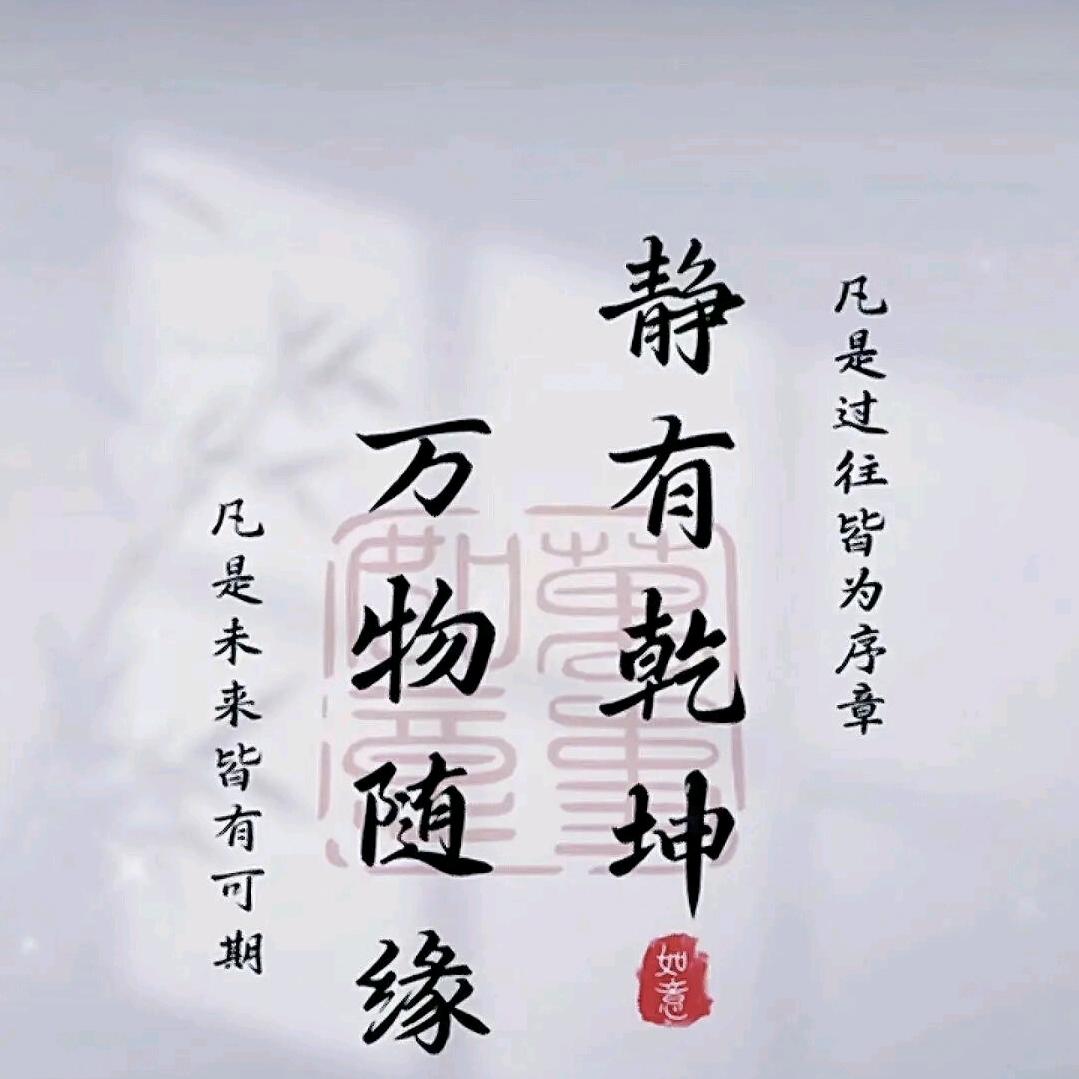 凡是过往皆为序章
静有乾坤
如意
万物随缘
凡是未来皆有可期
万事如意